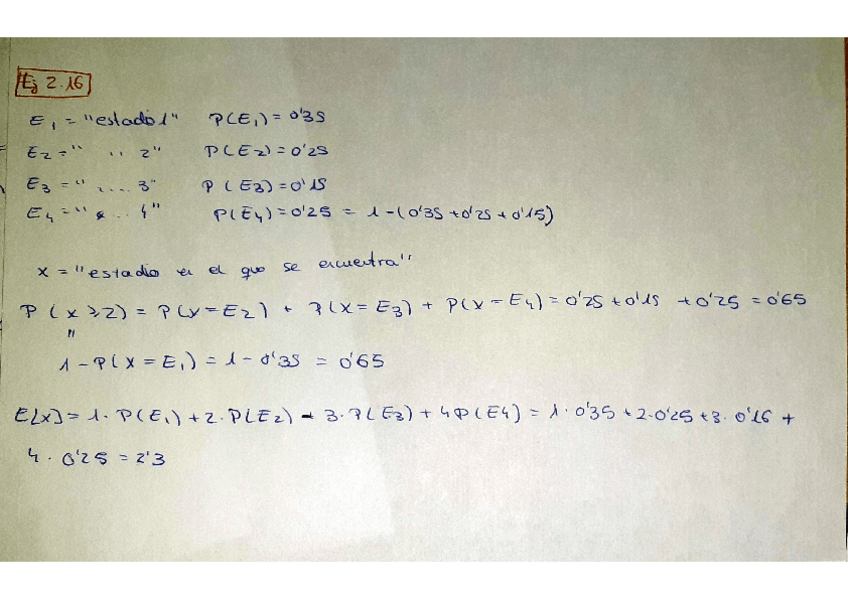 Ej 2.16
E₁ = "estadio 1" P(E₁) = 0'35
E₂ = " .. 2" P(E₂) = 0'25
E₃ = " .... 3" P(E₃) = 0'15
E₄ = " ... 4" P(E₄) = 0'25 = 1-(0'35+0'25+0'15)
x = "estadio en el que se encuentra"
P(x ≥ 2) = P(x = E₂) + P(x = E₃) + P(x = E₄) = 0'25 + 0'15 + 0'25 = 0'65
"
1 - P(x = E₁) = 1 - 0'35 = 0'65
E[x] = 1 · P(E₁) + 2 · P(E₂) + 3 · P(E₃) + 4 P(E4) = 1 · 0'35 + 2 · 0'25 + 3 · 0'16 +
4 · 0'25 = 2'3